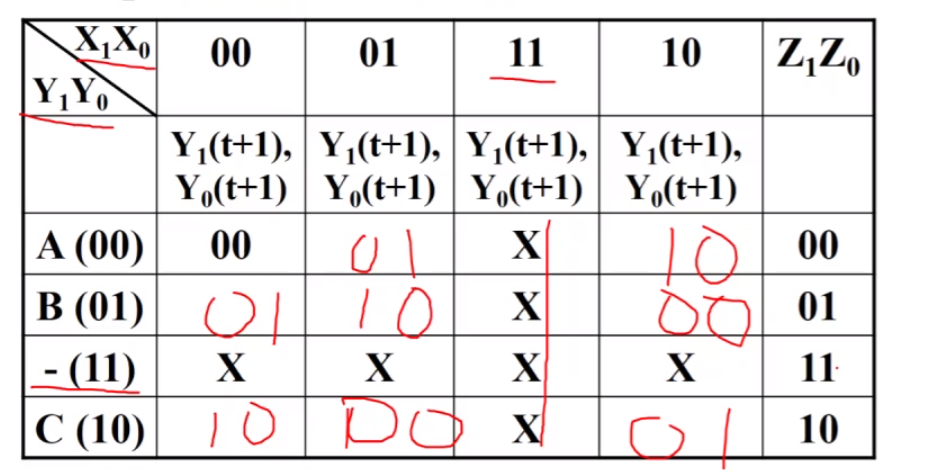 X₁X₀ 00 01 11 10 Z₁Z₀
Y₁Y₀
Y₁(t+1), Y₁(t+1), Y₁(t+1), Y₁(t+1),
Y₀(t+1) Y₀(t+1) Y₀(t+1) Y₀(t+1)
A (00) 00 01 X 10 00
B (01) 01 10 X 00 01
- (11) X X X X 11
C (10) 10 00 X 01 10